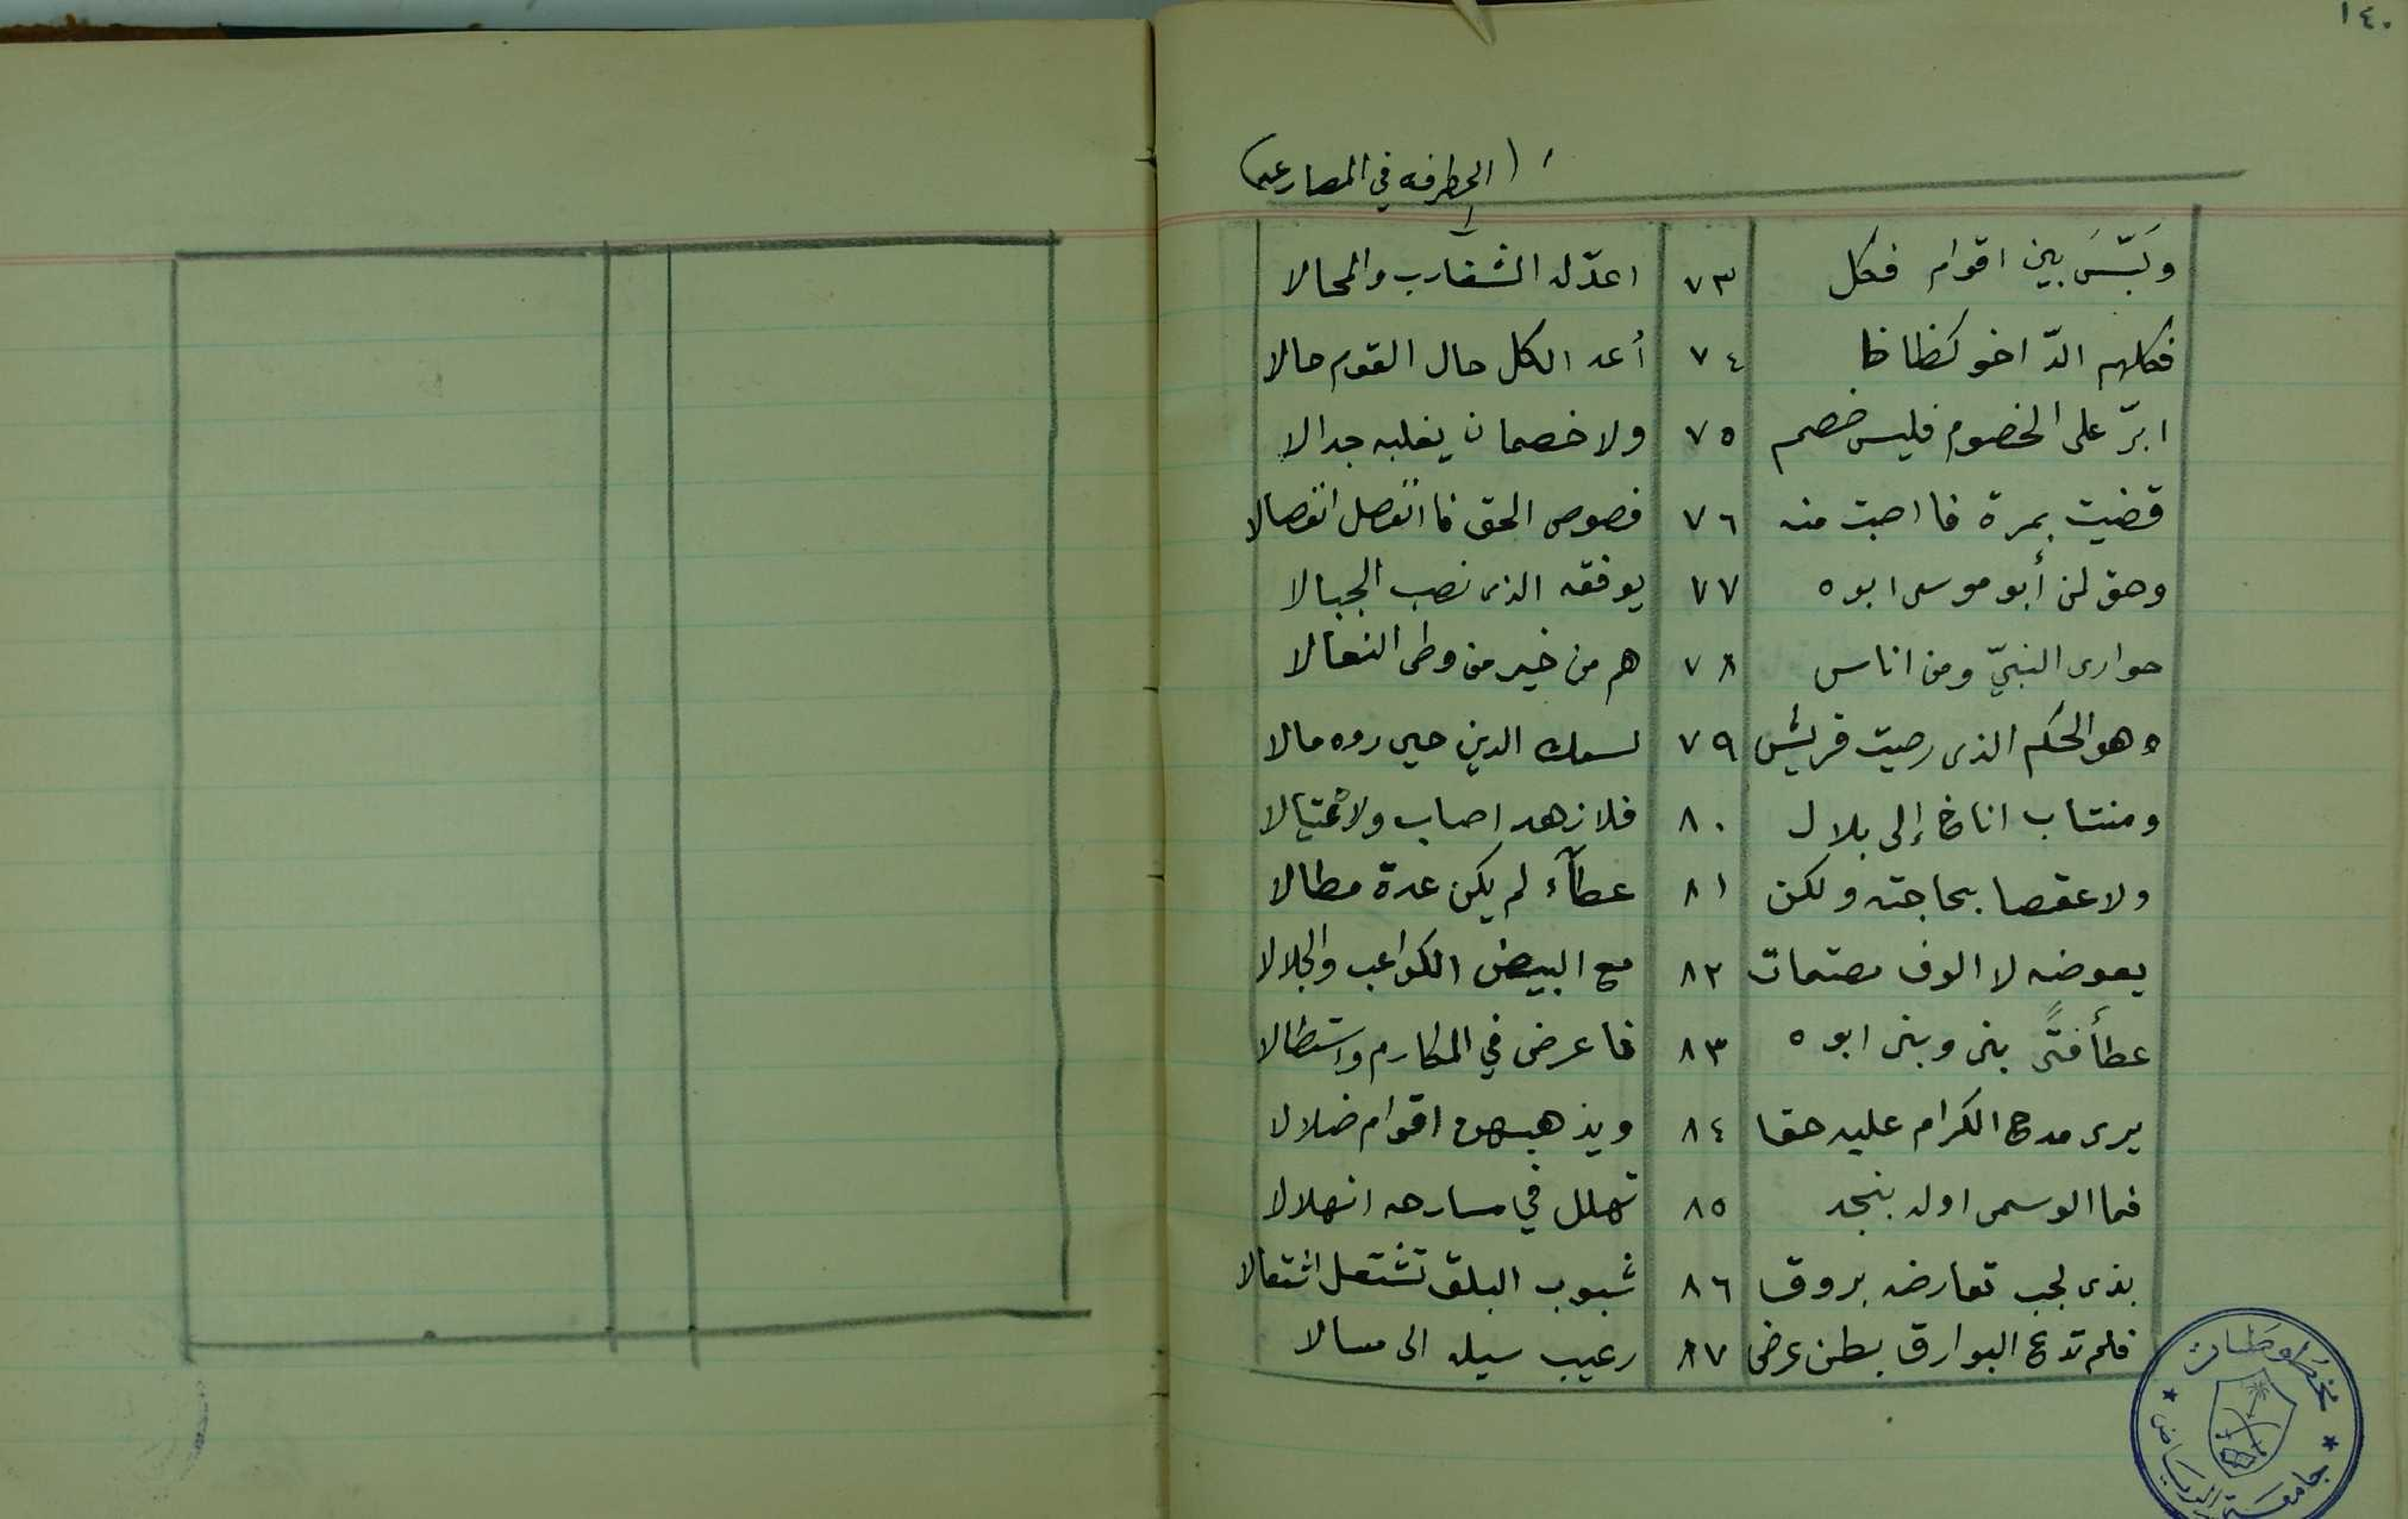 ١٤٠
(الحطرفه في المصارعه)
وَلَبَّسَ بين اقوام فكل ٧٣ اعدّ له الشغارب والمحالا
فكلهم الدّ اخو كظاظا ٧٤ أعد الكل حال القوم حالا
ابرّ على الخصوم فليس خصم ٧٥ ولا خصمان يغلبه جدالا
قضيت بمرة فاصبت منه ٧٦ فصوص الحق فانفصل انفصالا
وحق لمن أبو موسى ابوه ٧٧ يوفقه الذى نصب الجبالا
حوارى النبيّ ومن اناس ٧٨ هم من خير من وطى النعالا
وهو الحكم الذى رضيت قريش ٧٩ لسمك الدين حين روه مالا
ومنتاب اناخ إلى بلال ٨٠ فلا زهد اصاب ولا عتيالا
ولا عقصا بحاجته ولكن ٨١ عطآء لم يكن عدة مطالا
يعوضه لا الوف مصتمات ٨٢ مع البيض الكواعب والجلالا
عطأ فتًى بنى وبنى ابوه ٨٣ فاعرض في المكارم واستطالا
يرى مدح الكرام عليه حقا ٨٤ ويذهبهن اقوام ضلالا
فما الوسمى اوله بنجد ٨٥ تهلل في مسارحه انهلالا
بذى لجب تعارضه بروق ٨٦ شبوب البلق تشتعل اشتعالا
فلم تدع البوارق بطن عرض ٨٧ رغيب سيله الى مسالا
مخطوطات
جامعة الرياض